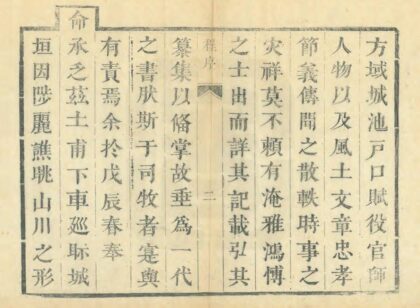 方域城池戶口賦役官師
人物以及風土文章忠孝
節義傳聞之散軼時事之
灾祥莫不賴有淹雅鴻博
之士出而詳其記載弘其
程序
二
纂集以俻掌故垂爲一代
之書肰斯于司牧者寔與
有責焉余於戊辰春奉
命
承乏茲土甫下車廵眎城
垣因陟麗譙眺山川之形